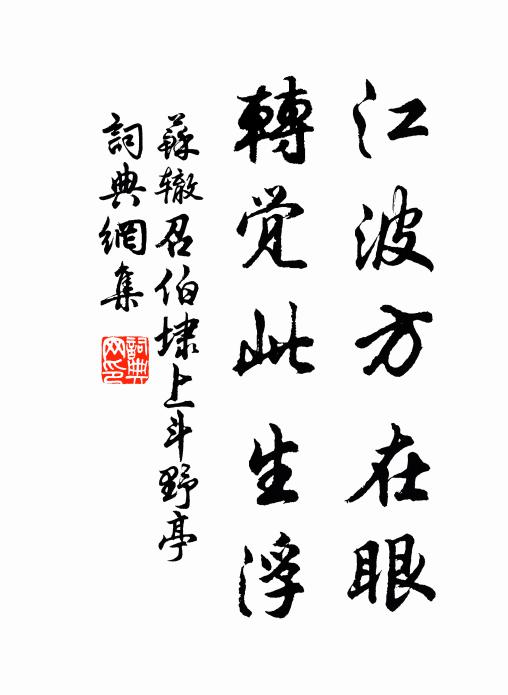 江波方在眼
轉覺此生浮
蘇辙召伯埭上斗野亭
詞典網集
詞典網印